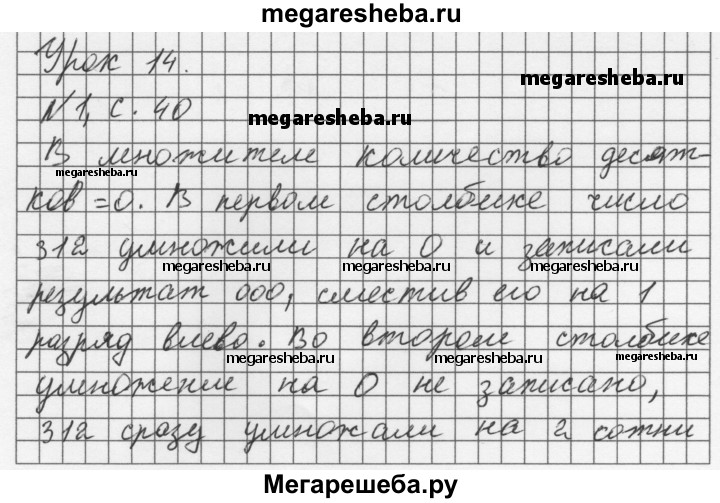 megaresheba.ru
Урок 14.
megaresheba.ru
N 1, с. 40
megaresheba.ru
В множителе количество десят-
megaresheba.ru
ков = 0. В первом столбике число
312 умножили на 0 и записали
megaresheba.ru megaresheba.ru megaresheba.ru
результат 000, сместив его на 1
разряд влево. Во втором столбике
megaresheba.ru megaresheba.ru megaresheba.ru
умножение на 0 не записано,
312 сразу умножали на 2 сотни
Мегарешеба.ру